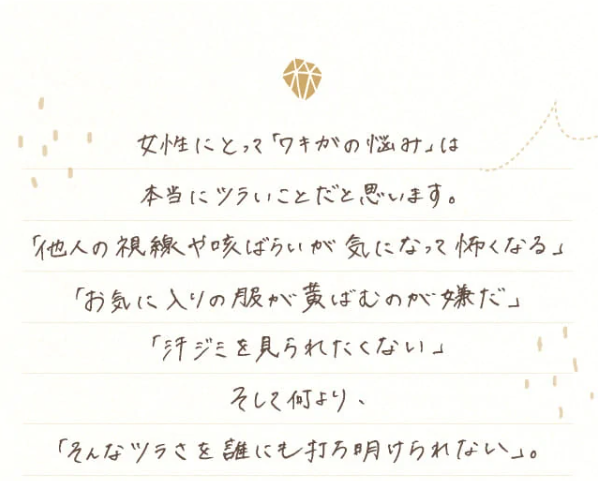 女性にとって「ワキガの悩み」は
本当にツラいことだと思います。
「他人の視線や咳ばらいが気になって怖くなる」
「お気に入りの服が黄ばむのが嫌だ」
「汗ジミを見られたくない」
そして何より、
「そんなツラさを誰にも打ち明けられない」。